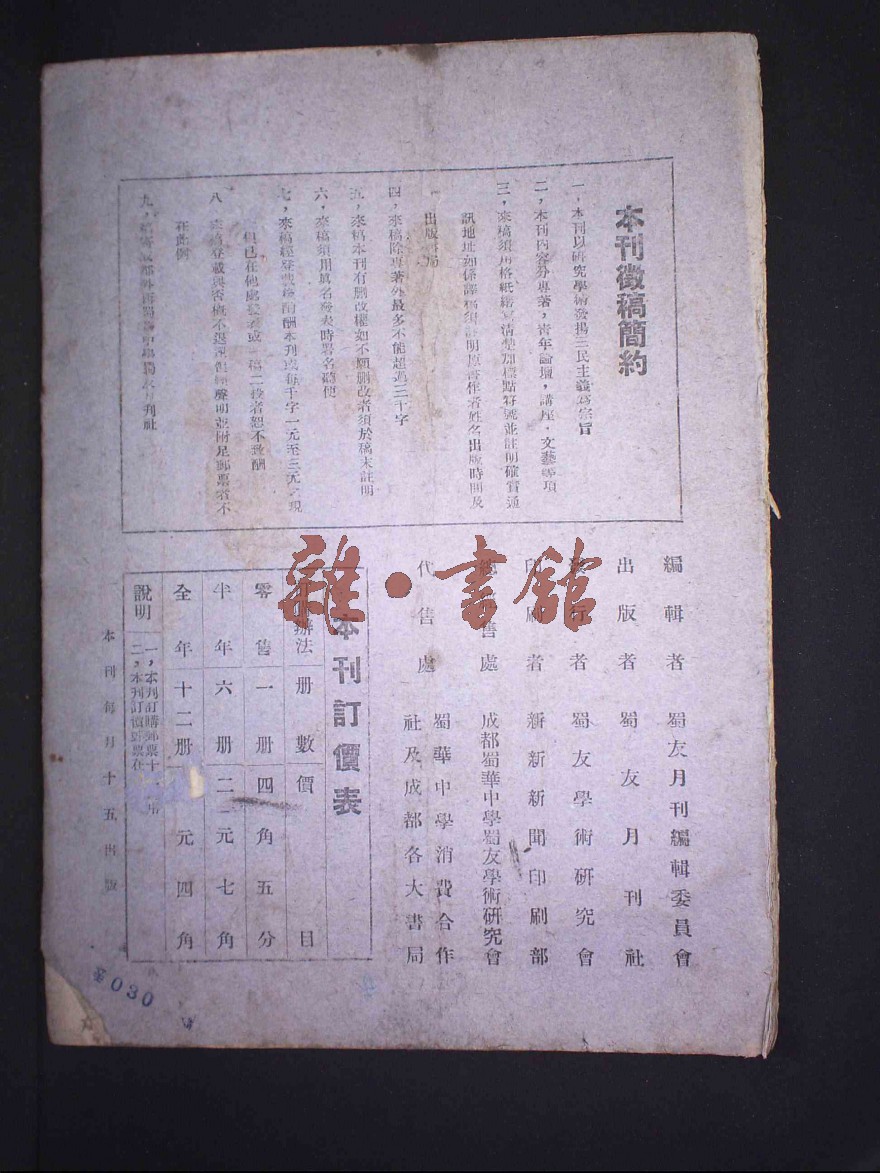 本刊徵稿簡約
一，本刊以研究學術發揚三民主義爲宗旨
二，本刊內容分專著，青年論壇，講座，文藝等項
三，來稿須用格紙繕寫清楚加標點符號並註明確實通
訊地址如係譯稿須註明原著作者姓名出版時間及
出版書局
四，來稿除專著外最多不能超過三千字
五，來稿本刊有刪改權如不願刪改者須於稿末註明
六，來稿須用眞名發表時署名隨便
七，來稿經登載後酌酬本刊或每千字一元至三元之現
但已在他處發表或一稿二投者恕不致酬
八 來稿登載與否概不退還但經聲明並附足郵票者不
在此例
九，
編輯者 蜀友月刊編輯委員會
出版者 蜀友月刊社
發行者 蜀友學術研究會
印刷者 新新新聞印刷部
售處 成都蜀華中學蜀友學術研究會
代售處 蜀華中學消費合作
社及成都各大書局
本刊訂價表
辦法 册數 價目
零售 一册 四角五分
半年 六册 二元七角
全年 十二册 元四角
說明 一，本刊訂購郵票十
二，本刊訂價郵票在
本刊每月十五出版
雜·書館
030